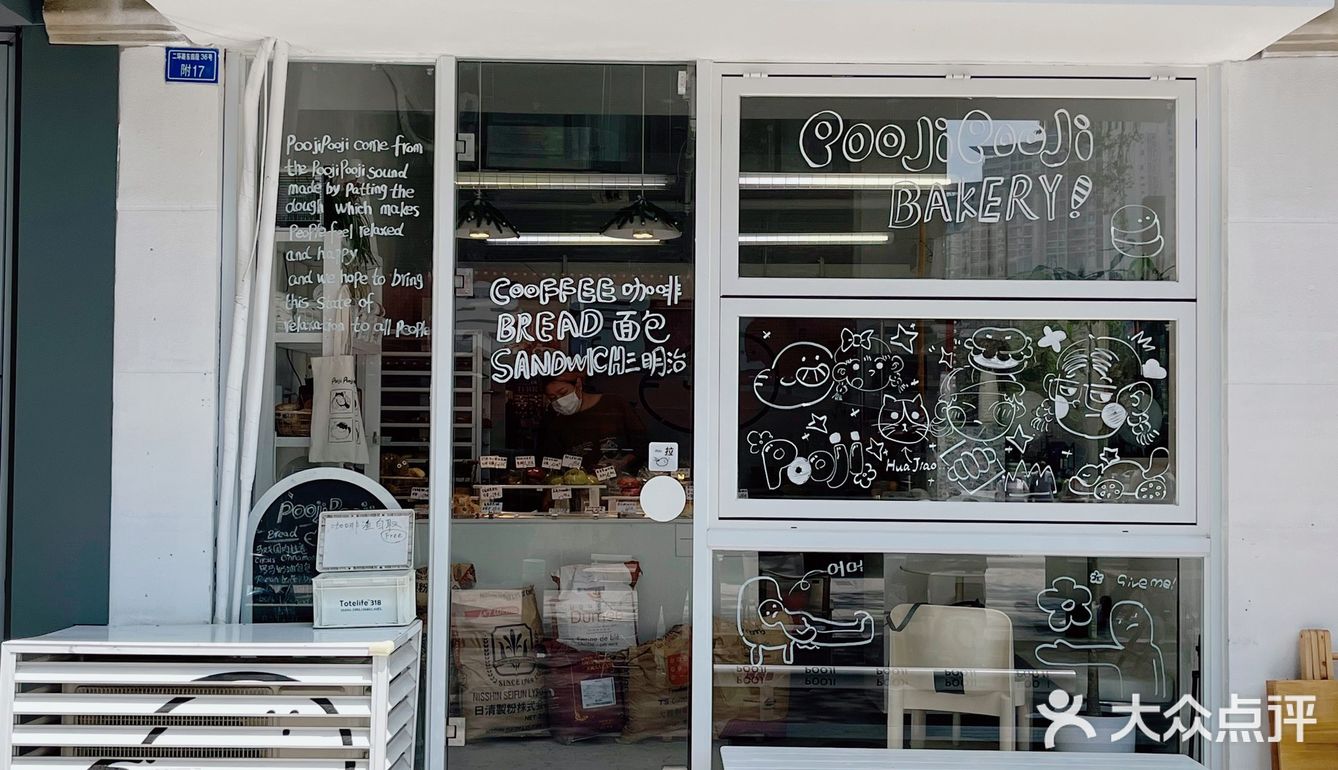 二环路东四段36号
附17
PoojiPooji come from
the PoojiPooji sound
made by Patting the
dough which makes
People feel relaxed
and happy
and we hope to bring
this state of
relaxation to all People
COOFFEE 咖啡
BREAD 面包
SANDWICH 三明治
POOJiPOOJi
BAKERY!
Pooji
HuaJiao
어머
Give me!
拉
PoojiPooji
Bread
Free
Totelife 318
SINCE
NISSHIN SEIFUN
日清製粉株式
POOJI POOJI POOJI POOJI
大众点评